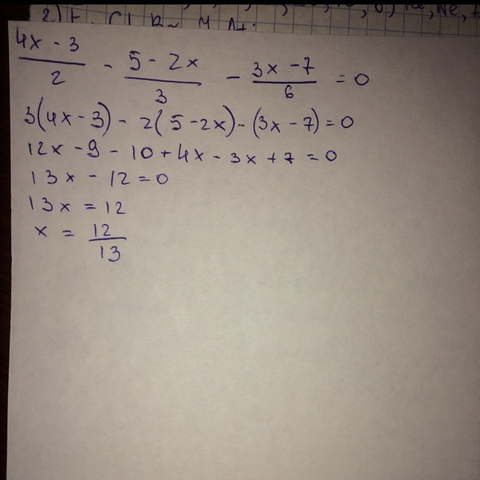 (4x - 3)/2 - (5 - 2x)/3 - (3x - 7)/6 = 0
3(4x - 3) - 2(5 - 2x) - (3x - 7) = 0
12x - 9 - 10 + 4x - 3x + 7 = 0
13x - 12 = 0
13x = 12
x = 12/13